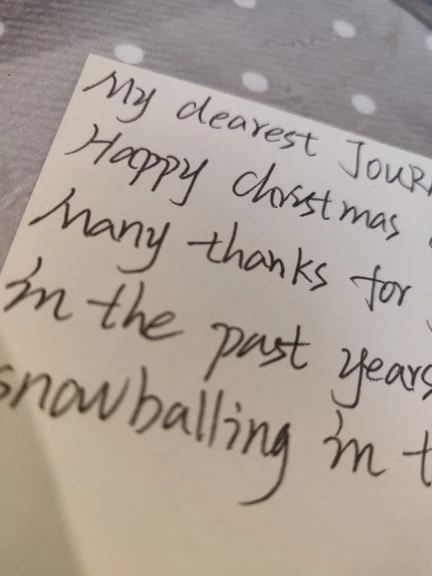 My dearest JOUR
Happy christmas
Many thanks for
in the past years
snowballing in t